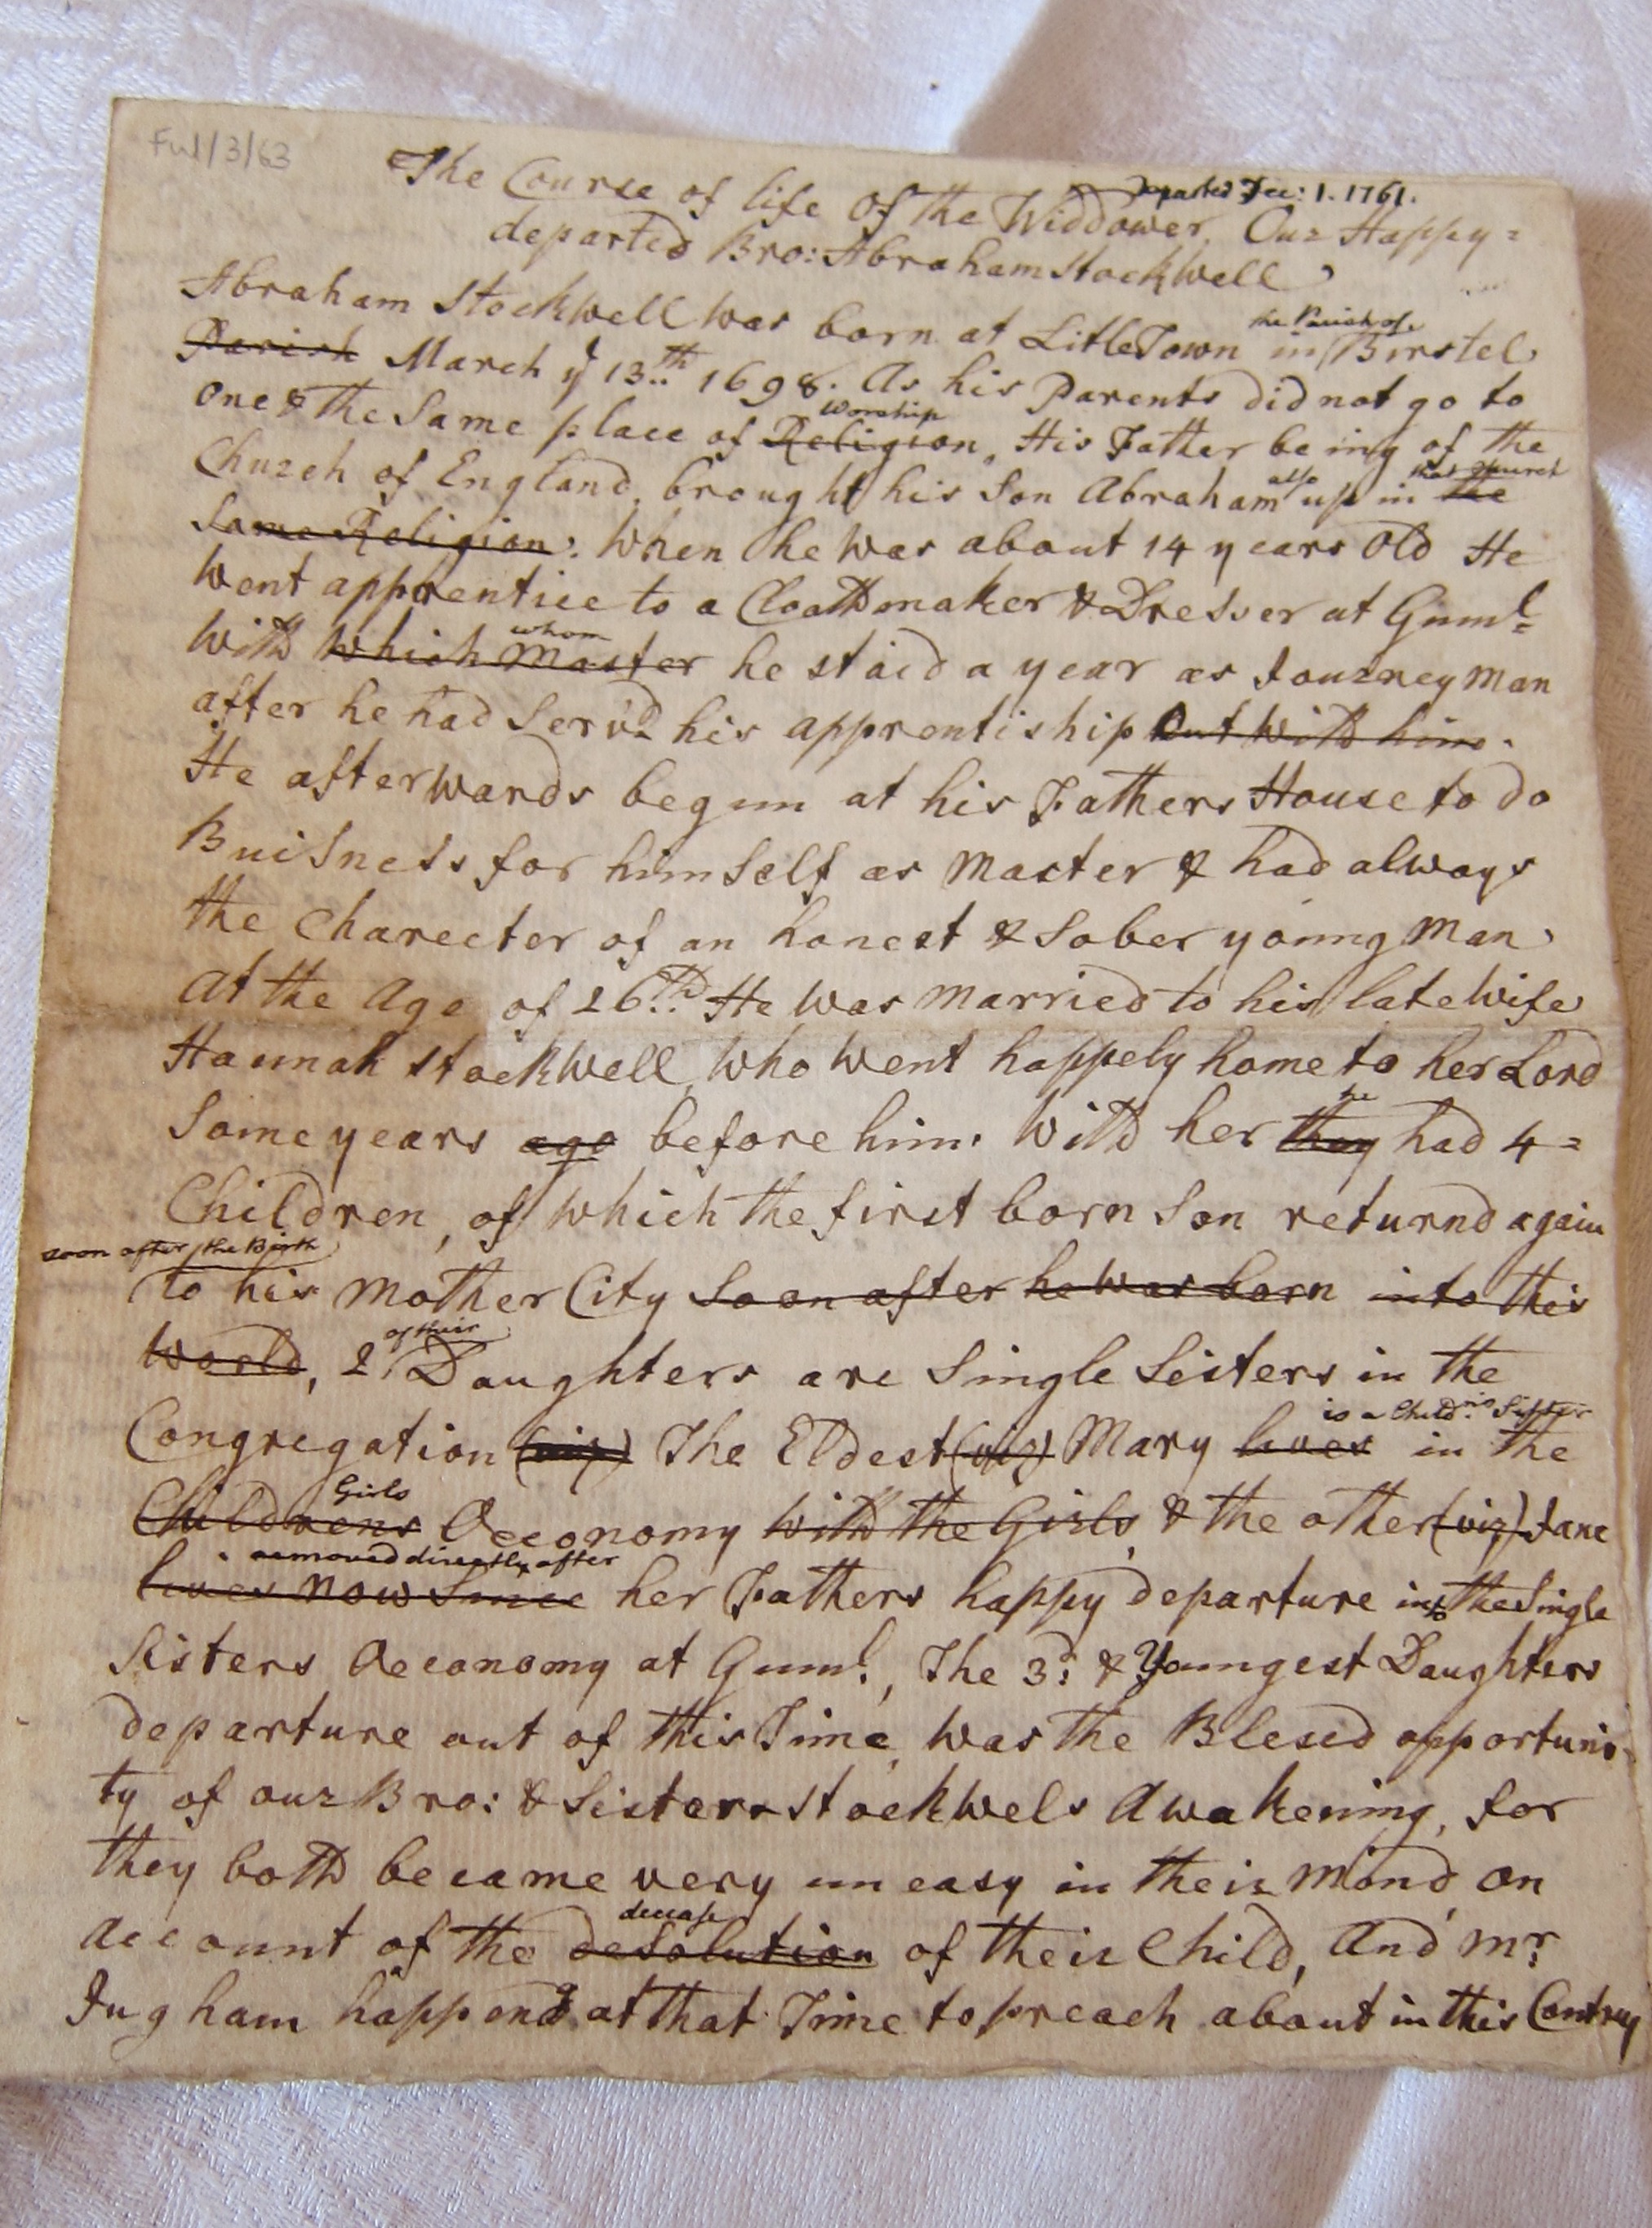 Ful/3/63
Departed Dec: 1. 1761.
The Course of life Of the Widdower, Our Happy=
departed Bro: Abraham Stockwell
Abraham Stockwell was born at LitleTown in the Parish of Birstel
Parish March ye 13th 1698. As his Parents did not go to
one & the Same place of Religion Worship, His Father being of the
Church of England, brought his Son Abraham also up in the that Church
Same Religion: When he was about 14 years Old He
Went apprentice to a Cloathmaker & Dresser at Guml=
With which Master whom he staid a year as Journey man
after he had Serv'd his apprentiship out with him.
He afterwards begun at his Fathers House to do
Buisness for himself as Master & had always
the Charecter of an honest & Sober young Man
At the Age of 26th He was married to his late Wife
Hannah Stockwell, Who Went happely home to her Lord
Some years ago before him. With her they he had 4=
Children, of which the first born Son returnd again
soon after the Birth
to his Mother City Soon after he was born into this
World, 2 of their Daughters are Single Sisters in the
Congregation (viz) The Eldest (viz) Mary lives is a Childns Sister in the
Childrens Girls Oeconomy With the Girls, & the other (viz) Jane
lives now Since removed directly after her Fathers happy departure into the Single
Sisters Oeconomy at Guml., The 3d & Youngest Daughters
departure out of this Time, Was the Blesed opportuni=
ty of our Bro: & Sister Stockwels Awakening, for
they both became very uneasy in their Mind on
Account of the desolution decease of their Child, And Mr
Ingham happend at that Time to preach about in this Contrey